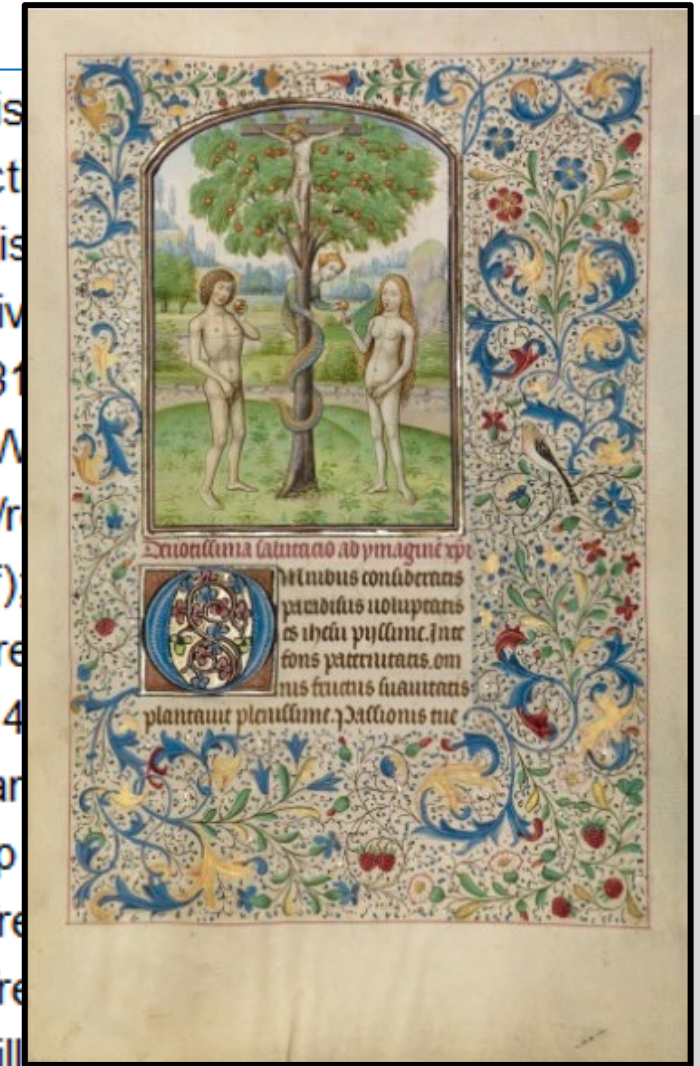 is
ct
is
iv
31
f);
re
4
ar
p
re
re
ill
Deuotissima salutacio ad ymaginē xpi
OMnibus consideratis
paradisus uoluptatis
es ihesu pyissime. Inte
fons paternitatis. om
nis fructus suauitatis
plantauit plenissime. Passionis tue